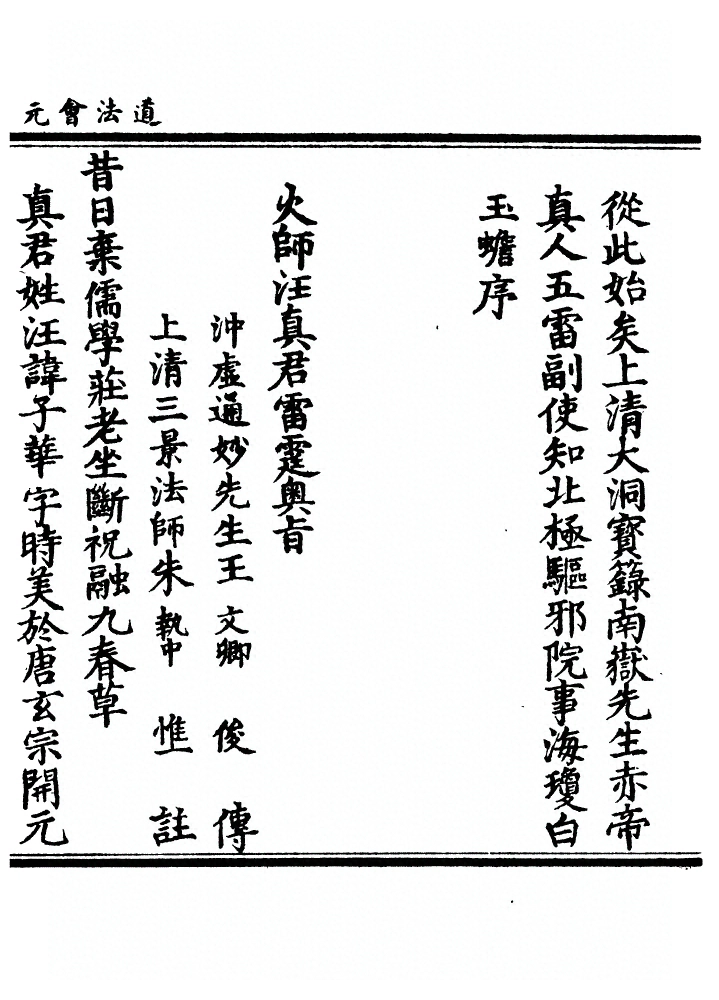 道法會元
從此始矣上清大洞寶籙南嶽先生赤帝
真人五雷副使知北極驅邪院事海瓊白
玉蟾序
火師汪真君雷霆奧旨
沖虛通妙先生王文卿俊傳
上清三景法師朱執中惟註
昔日棄儒學莊老坐斷祝融九春草
真君姓汪諱子華字時美於唐玄宗開元